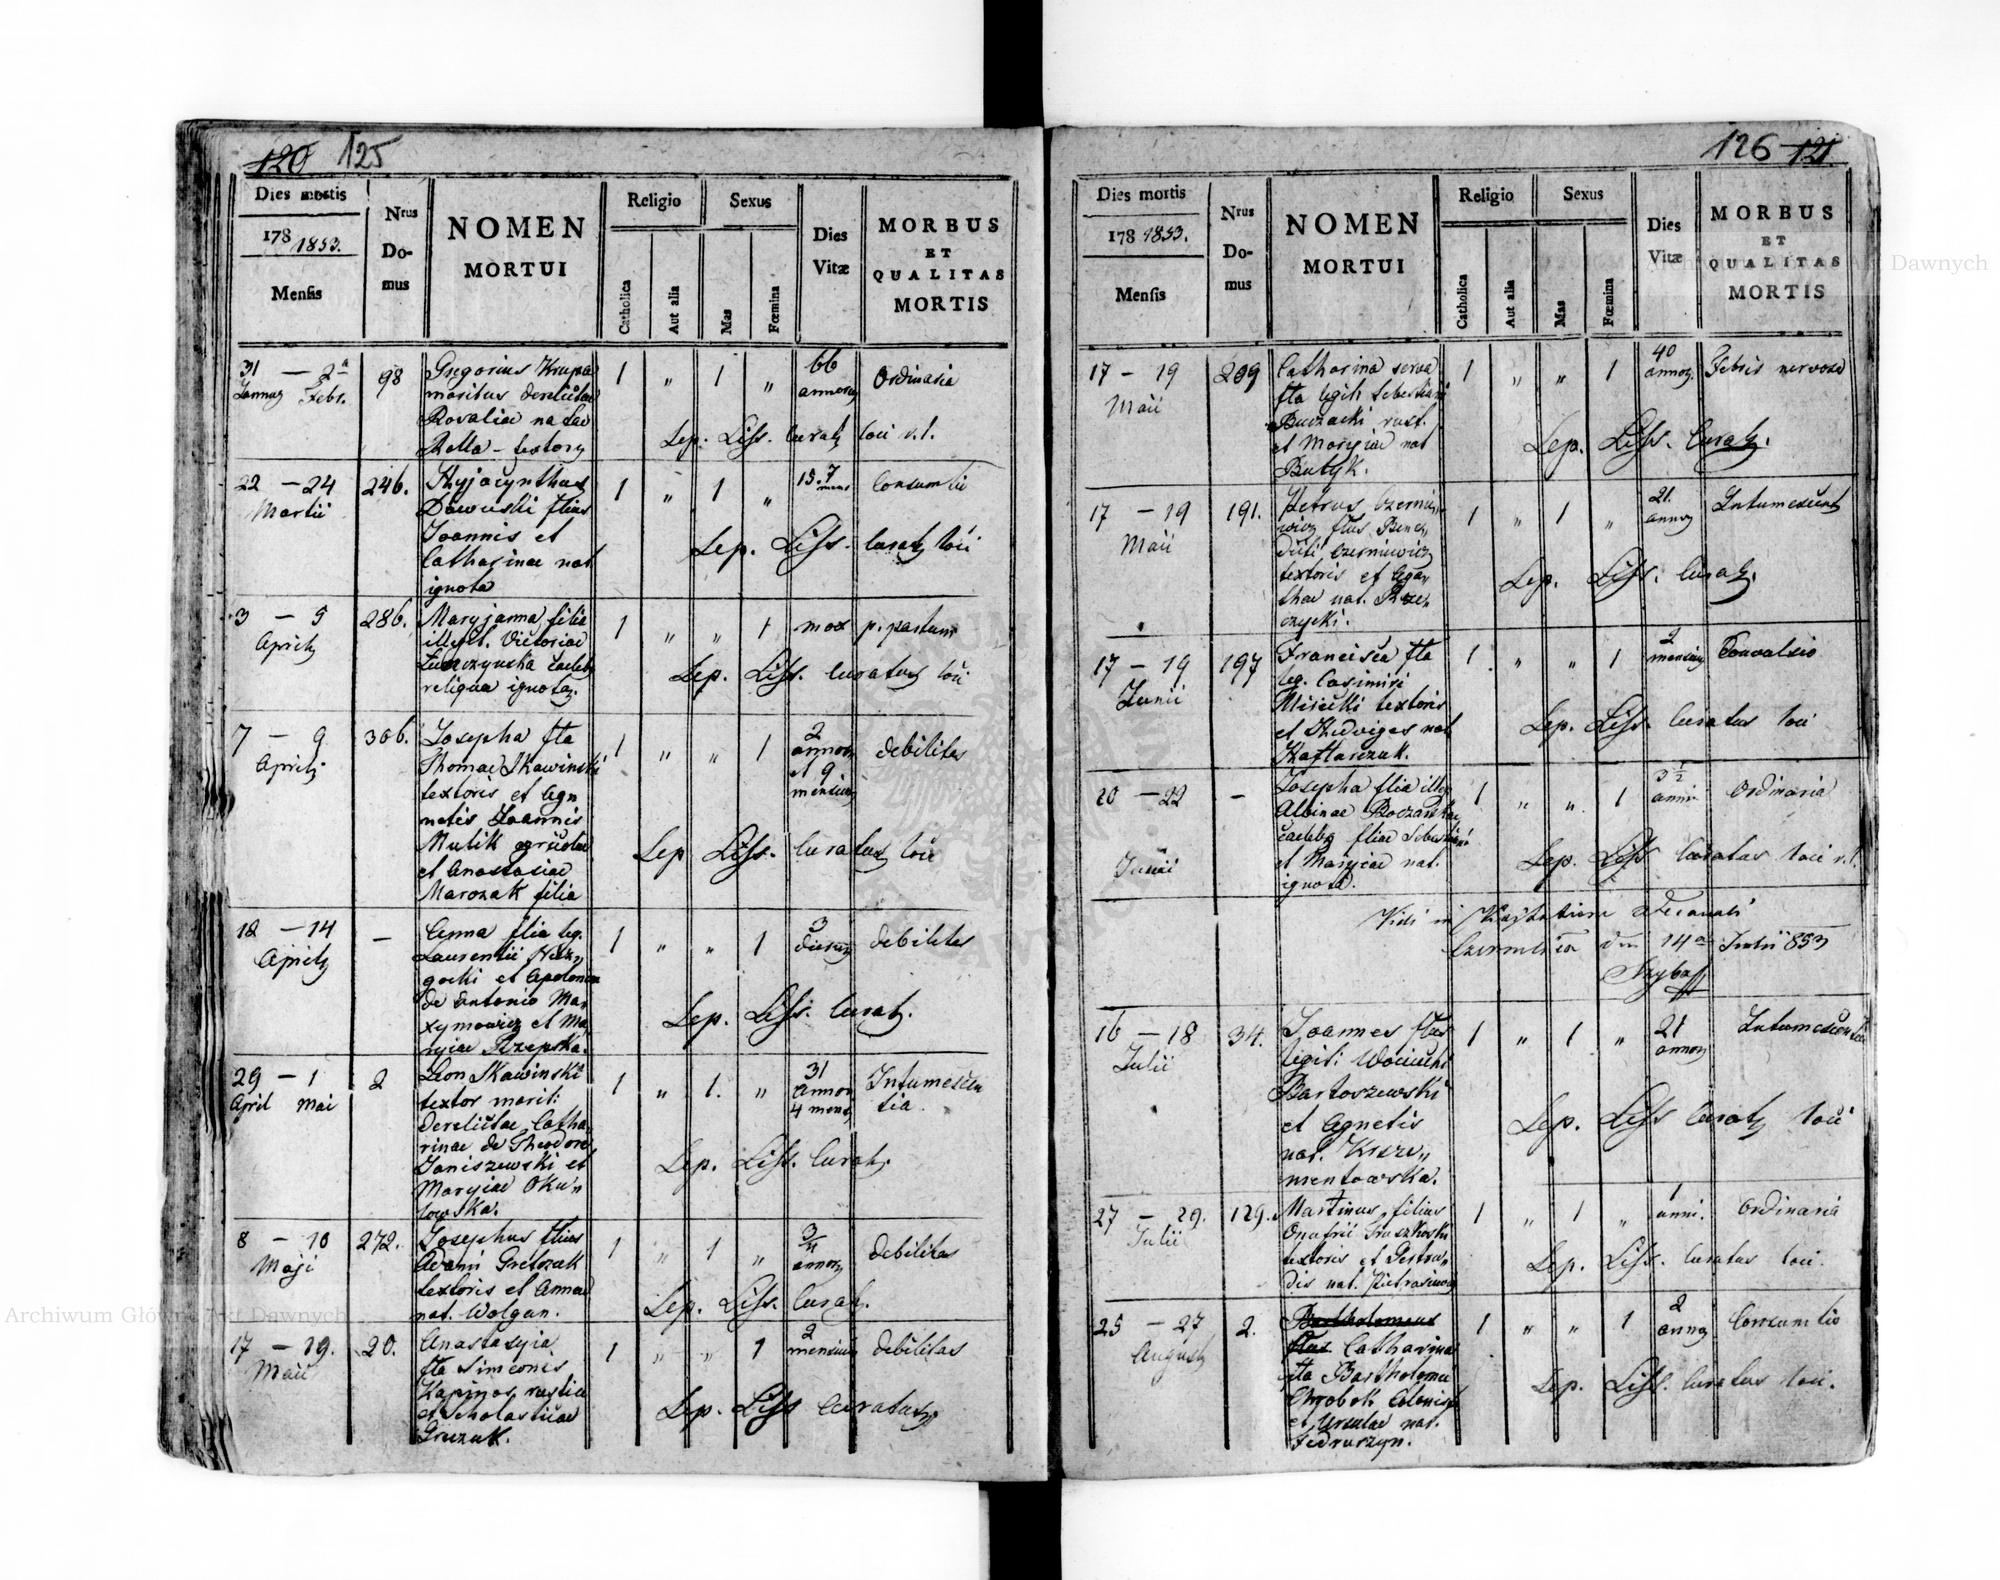 120 125
Dies mortis
178 1853.
Mensis
Nrus
Do-
mus
NOMEN
MORTUI
Religio
Catholica
Aut alia
Sexus
Mas
Fœmina
Dies
Vitæ
MORBUS
ET
QUALITAS
MORTIS
31 — 2a
Febr.
98
Gregorius Krupa
maritus derelictae
Rosaliae natae
Rella - textor
1 „ 1 „
66
annorum
Ordinaria
Sep. Liss. curat loci
22 — 24
Martii
246.
Hyjacynthus
filius
Joannis et
Catharinae nat
ignota
1 „ 1 „
15. 7
mens
Consumtio
Sep. Liss. curat loci
3 — 5
April
286.
Maryjanna filia
illegit. Victoriae
religua ignota.
1 „ „ 1
mox p. partum
Sep. Liss. curatus loci
7 — 9
April
306.
Josepha fta
Thomae Skawinski
textoris et Agn
netis Joannis
Mulik
et Anastasiae
Marozak filia
1 „ „ 1
2
annor
et 9
mensium
debilitas
Sep Liss. curatus loci
12 — 14
April
—
Anna flia leg.
Laurentii
gocki et Apolonia
de Antonio Ma,
xymowicz et Ma,
ryiae Rzepska.
1 „ „ 1
3
dierum
debilitas
Sep. Liss. curat.
29 — 1
April Mai
2
Leon Skawinski
textor marit:
derelictae Catha,
rinae de Theodoro
Janiszewski et
Maryiae Oku„
lowska.
1 „ 1. „
31
annor
4 mens
Intumescen
tia
Sep. Liss. curat.
8 — 10
Maji
272.
Josephus flius
Adami Gretczak
textoris et Annae
nat. Wolgan.
1 „ 1 „
3/4
annor
debilitas
Sep. Liss. curat.
17 — 19.
Maii
20.
Anastasyia
fta Simeonis
Kapinos rustici
et Scholasticae
Gruzuk.
1 „ „ 1
2
mensium
debilitas
Sep. Liss curatus
126 121.
Dies mortis
178 1853.
Mensis
Nrus
Do-
mus
NOMEN
MORTUI
Religio
Catholica
Aut alia
Sexus
Mas
Fœmina
Dies
Vitæ
MORBUS
ET
QUALITAS
MORTIS
17 — 19
Maii
209
Catharina serva
fta legit: Sebastiani
Buczacki rust.
et Maryiae nat
Butyk.
1 „ „ 1
40
annor.
Febris nervosa
Sep. Liss. curat.
17 — 19
Maii
191.
Petrus Czernie„
wicz flus Bene„
dicti Czerniewicz
textoris et Aga„
thae nat. Rze„
czycki.
1 „ 1 „
21.
annor
Intumescent
Sep. Liss. curat.
17 — 19
Junii
197
Francisca fta
leg. Casimiri
Misicki textoris
et Hedviges nat
Kaftarczuk.
1 „ „ 1
2
mensium
Convulsio
Sep. Liss. curatus loci
20 — 22
Junii
—
Josepha flia illeg
Albinae
caelebs filiae Sebastiani
et Maryiae nat.
ignota.
1 „ „ 1
3 1/2
anni
Ordinaria
Sep. Liss curatus loci
Vidi in
14a Julii 853
16 — 18
Julii
34.
Joannes flus
legit:
Bartoszewski
et Agnetis
nat. Krze„
mentowska.
1 „ 1 „
21
annor
Intumescentia
Sep. Liss curat loci
27 — 29.
Julii
129.
Martinus filius
Onufrii
textoris et Gertru„
dis nat.
1 „ 1 „
1
anni.
Ordinaria
Sep. Liss. curatus loci.
25 — 27
August
2.
Bartholomeus
flus Catharina
fta Bartholomei
Chrobok Colonist
et Ursulae nat.
Fedruszyn.
1 „ „ 1
2
annor
Consumtio
Sep. Liss. curatus loci.
Archiwum Główne Akt Dawnych